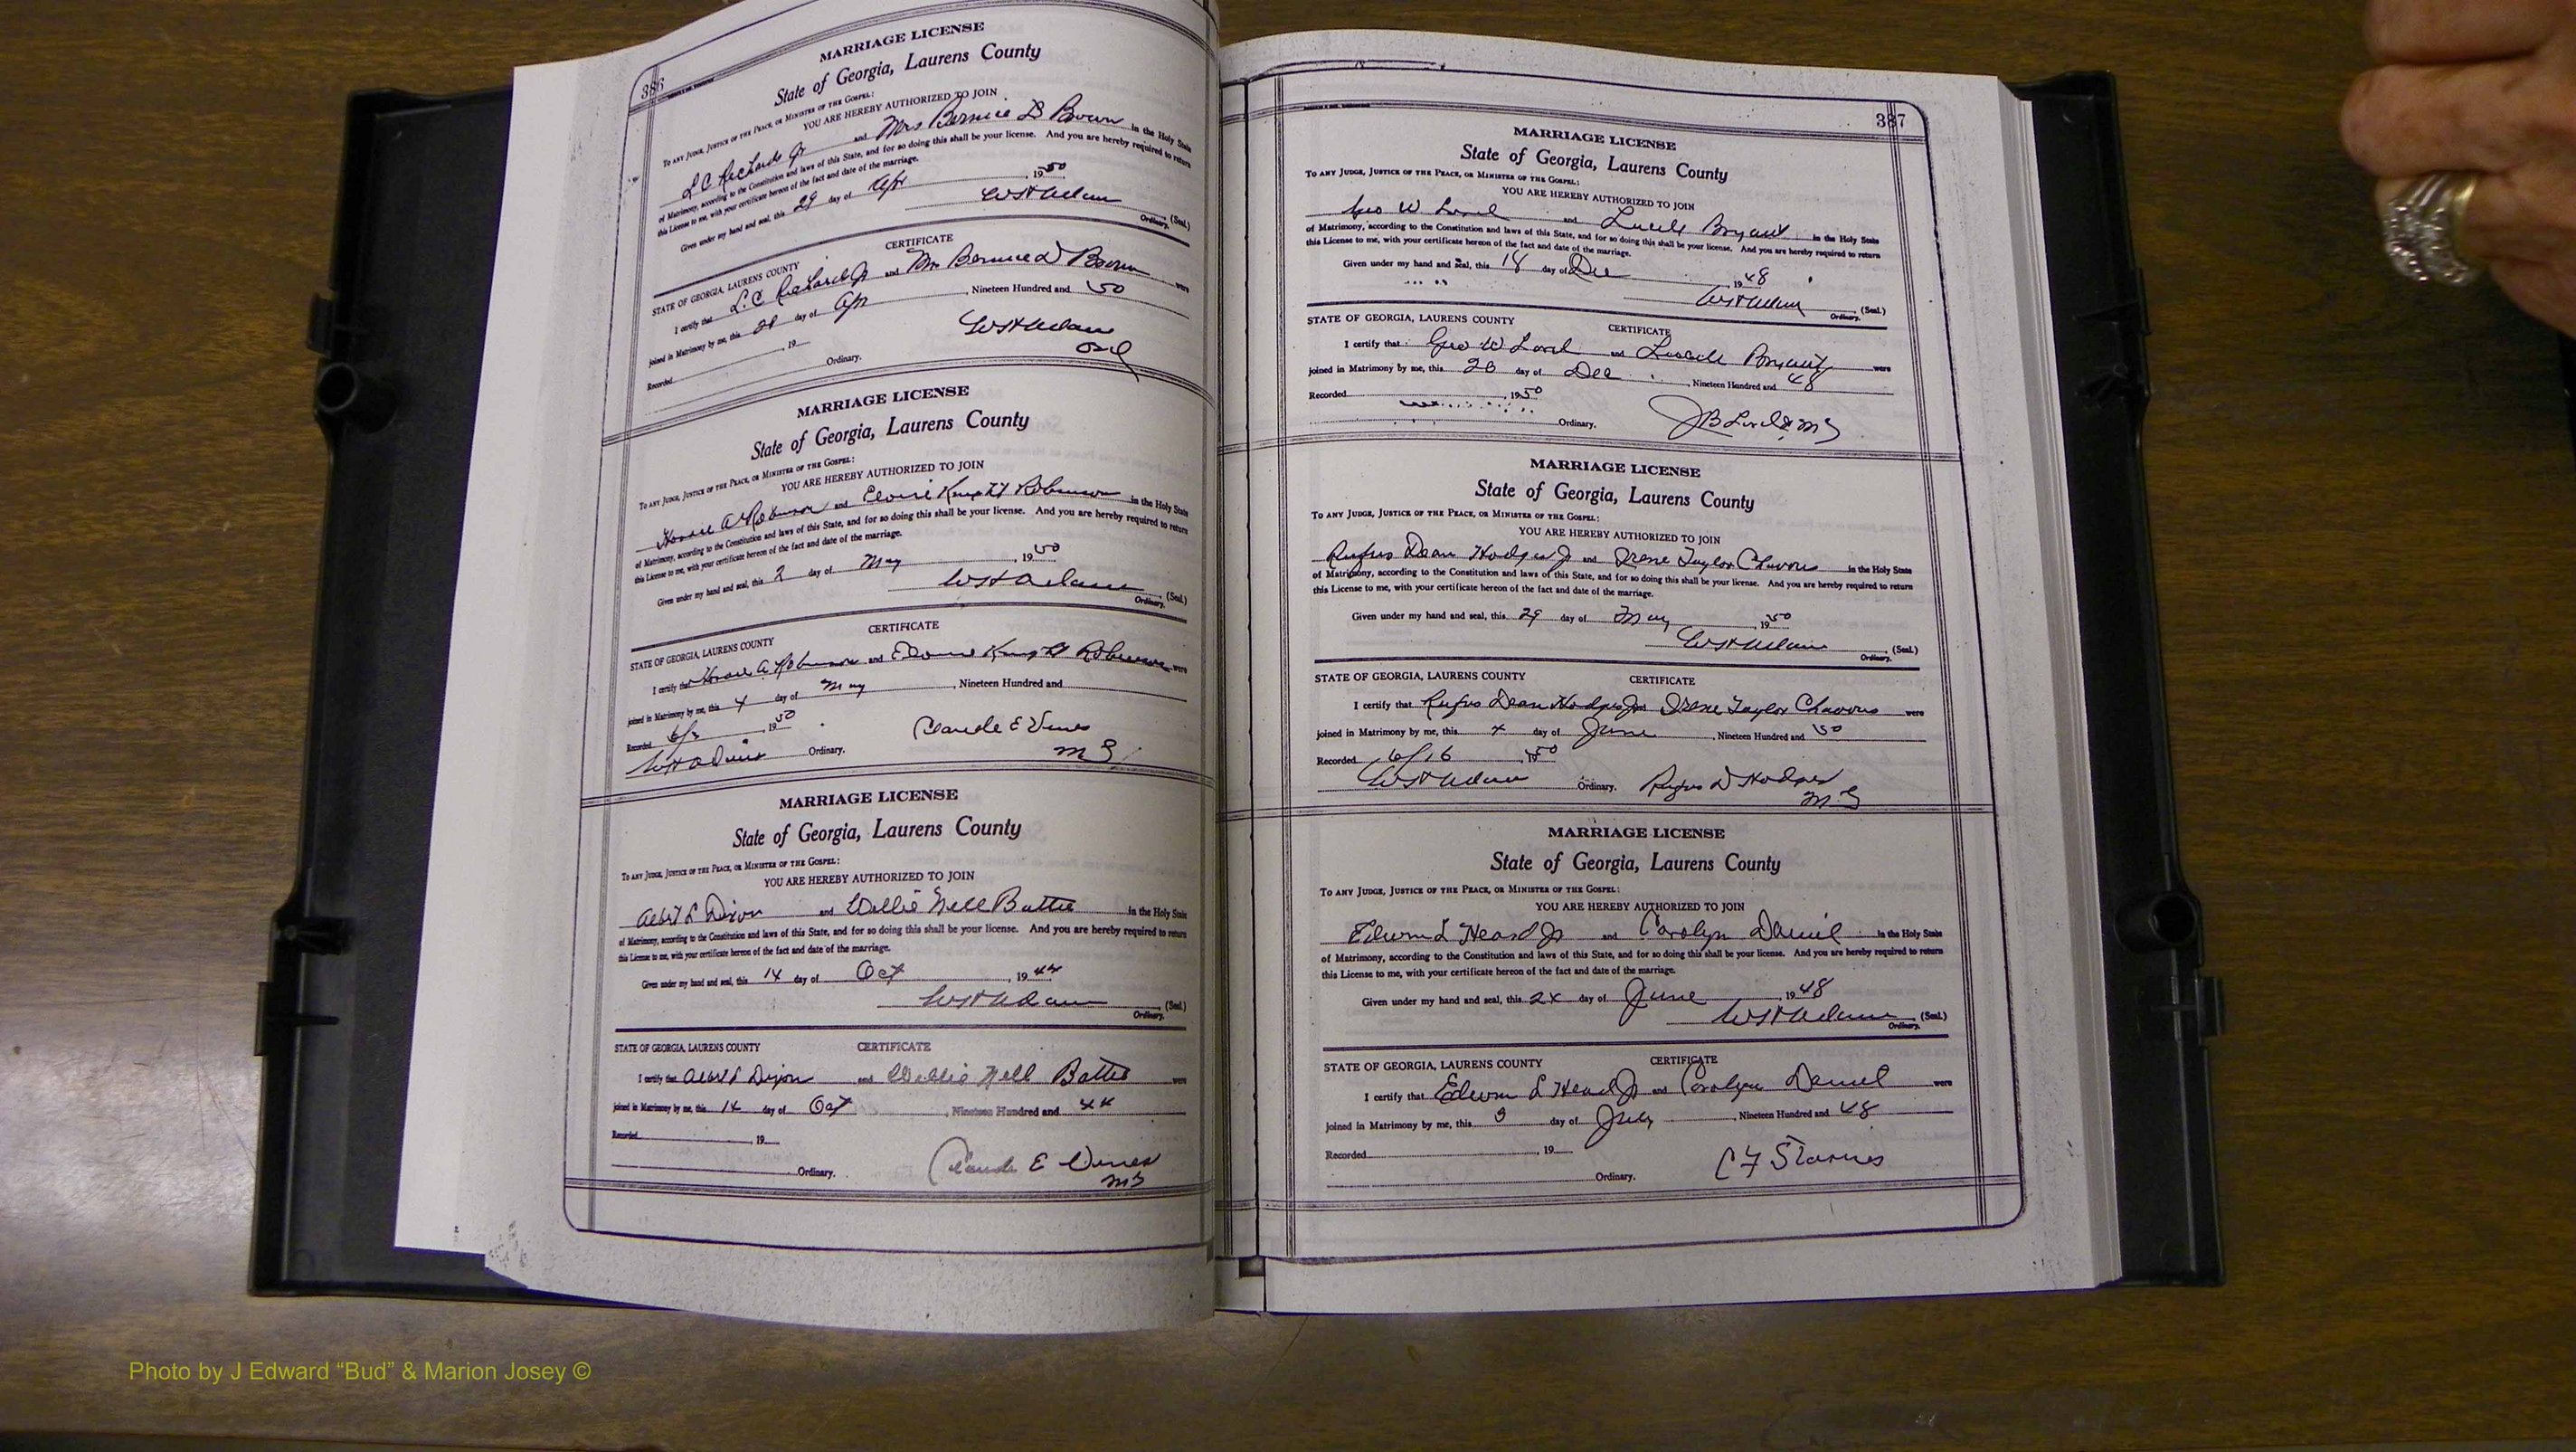 386
MARRIAGE LICENSE
State of Georgia, Laurens County
TO ANY JUDGE, JUSTICE OF THE PEACE, OR MINISTER OF THE GOSPEL:
YOU ARE HEREBY AUTHORIZED TO JOIN
L C Richards Jr and Mrs Bernice D Brown in the Holy State
of Matrimony, according to the Constitution and laws of this State, and for so doing this shall be your license. And you are hereby required to return
this License to me, with your certificate hereon of the fact and date of the marriage.
Given under my hand and seal, this 29 day of Apr, 1950
WH Adams (Seal.)
Ordinary.
CERTIFICATE
STATE OF GEORGIA, LAURENS COUNTY
I certify that L.C Richards Jr and Mrs Bernice D Brown were
joined in Matrimony by me, this day of Apr, Nineteen Hundred and 50
Recorded, 19
WH Adams
Ordinary.
Ord
MARRIAGE LICENSE
State of Georgia, Laurens County
TO ANY JUDGE, JUSTICE OF THE PEACE, OR MINISTER OF THE GOSPEL:
YOU ARE HEREBY AUTHORIZED TO JOIN
Horace A Robinson and Eloise Knight Robinson in the Holy State
of Matrimony, according to the Constitution and laws of this State, and for so doing this shall be your license. And you are hereby required to return
this License to me, with your certificate hereon of the fact and date of the marriage.
Given under my hand and seal, this 2 day of May, 1950
WH Adams (Seal.)
Ordinary.
CERTIFICATE
STATE OF GEORGIA, LAURENS COUNTY
I certify that Horace A Robinson and Eloise Knight Robinson were
joined in Matrimony by me, this 4 day of May, Nineteen Hundred and
Recorded, 1950
Claude E Vines
WH Adams Ordinary.
MG
MARRIAGE LICENSE
State of Georgia, Laurens County
TO ANY JUDGE, JUSTICE OF THE PEACE, OR MINISTER OF THE GOSPEL:
YOU ARE HEREBY AUTHORIZED TO JOIN
Albert L Dixon and Willie Nell Battie in the Holy State
of Matrimony, according to the Constitution and laws of this State, and for so doing this shall be your license. And you are hereby required to return
this License to me, with your certificate hereon of the fact and date of the marriage.
Given under my hand and seal, this 14 day of Oct, 1944
WH Adams (Seal.)
Ordinary.
STATE OF GEORGIA, LAURENS COUNTY CERTIFICATE
I certify that Albert L Dixon and Willie Nell Battie were
joined in Matrimony by me, this 14 day of Oct, Nineteen Hundred and 44
Recorded, 19
Claude E Vines
Ordinary.
MG
387
MARRIAGE LICENSE
State of Georgia, Laurens County
TO ANY JUDGE, JUSTICE OF THE PEACE, OR MINISTER OF THE GOSPEL:
YOU ARE HEREBY AUTHORIZED TO JOIN
Geo W Lord and Lucile Bryant in the Holy State
of Matrimony, according to the Constitution and laws of this State, and for so doing this shall be your license. And you are hereby required to return
this License to me, with your certificate hereon of the fact and date of the marriage.
Given under my hand and seal, this 18 day of Dec 1948
WH Adams (Seal.)
Ordinary.
STATE OF GEORGIA, LAURENS COUNTY CERTIFICATE
I certify that Geo W Lord and Lucile Bryant were
joined in Matrimony by me, this 20 day of Dec, Nineteen Hundred and 48
Recorded, 1950
Ordinary.
MG
MARRIAGE LICENSE
State of Georgia, Laurens County
TO ANY JUDGE, JUSTICE OF THE PEACE, OR MINISTER OF THE GOSPEL:
YOU ARE HEREBY AUTHORIZED TO JOIN
Rufus Dean Hodges Jr and Irene Taylor Chavous in the Holy State
of Matrimony, according to the Constitution and laws of this State, and for so doing this shall be your license. And you are hereby required to return
this License to me, with your certificate hereon of the fact and date of the marriage.
Given under my hand and seal, this 29 day of May, 1950
WH Adams (Seal.)
Ordinary.
STATE OF GEORGIA, LAURENS COUNTY CERTIFICATE
I certify that Rufus Dean Hodges Jr Irene Taylor Chavous were
joined in Matrimony by me, this 4 day of June, Nineteen Hundred and 50
Recorded 6/16, 1950
WH Adams Ordinary. Rufus D Hodges
MG
MARRIAGE LICENSE
State of Georgia, Laurens County
TO ANY JUDGE, JUSTICE OF THE PEACE, OR MINISTER OF THE GOSPEL:
YOU ARE HEREBY AUTHORIZED TO JOIN
Edwin L Heard Jr and Carolyn Daniel in the Holy State
of Matrimony, according to the Constitution and laws of this State, and for so doing this shall be your license. And you are hereby required to return
this License to me, with your certificate hereon of the fact and date of the marriage.
Given under my hand and seal, this 24 day of June, 1948
WH Adams (Seal.)
Ordinary.
STATE OF GEORGIA, LAURENS COUNTY CERTIFICATE
I certify that Edwin L Heard Jr and Carolyn Daniel were
joined in Matrimony by me, this 3 day of July, Nineteen Hundred and 48
Recorded, 19
C F Starnes
Ordinary.
Photo by J Edward “Bud” & Marion Josey ©